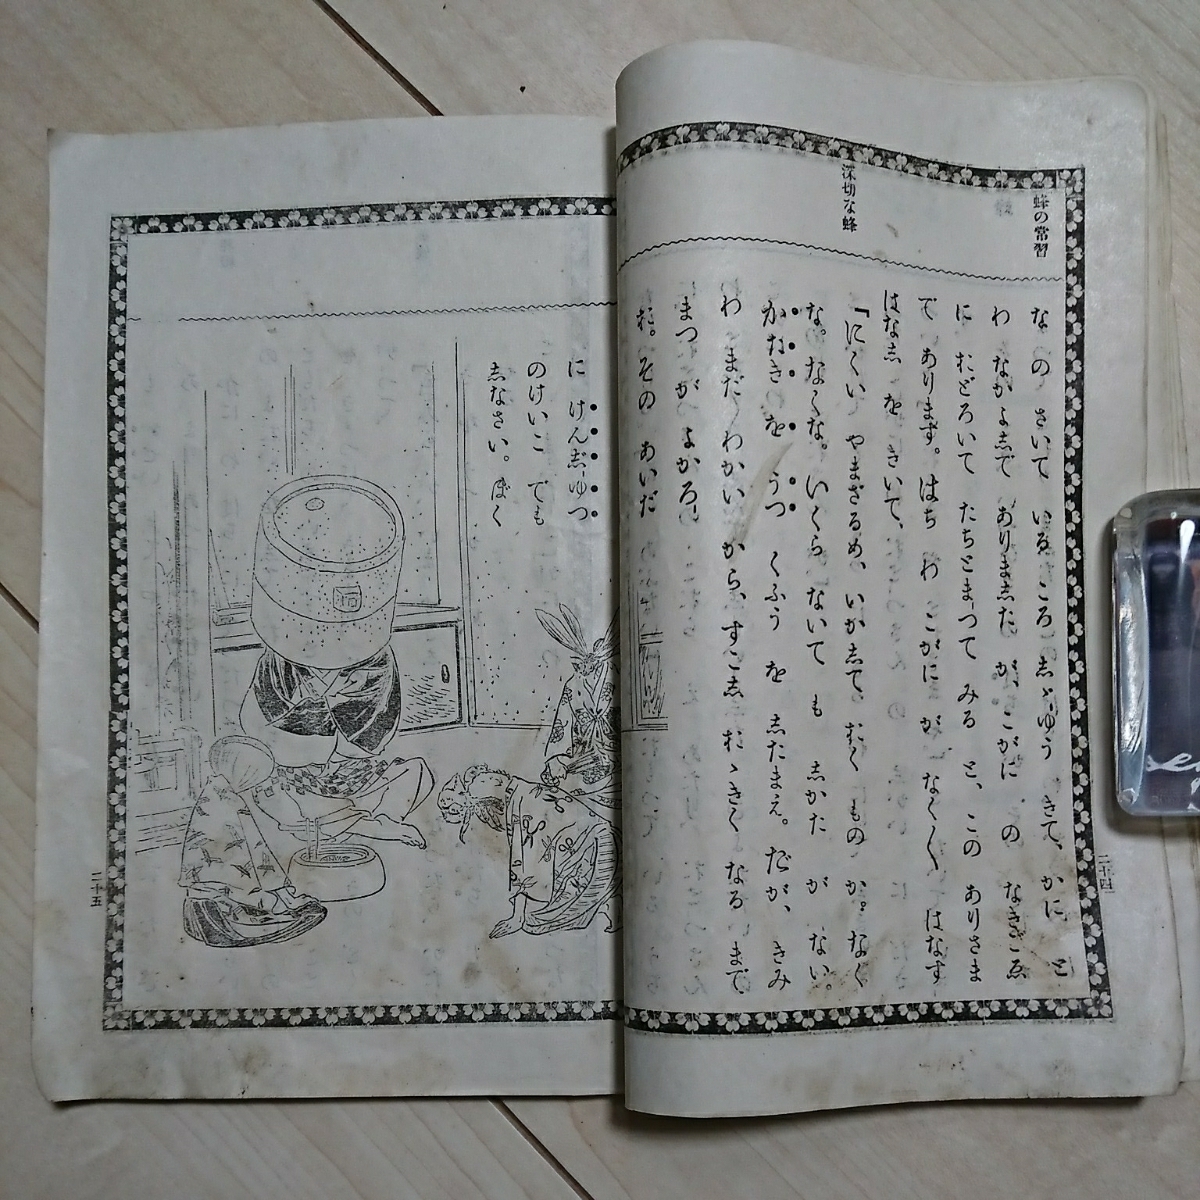 蜂の常習
深切な蜂
な の さいて いる ころ 志ゝゆう きて、かに と
わ なかよ志で ありま志た が、こがに の なきごゑ
に おどろいて たちとまつて みる と、この ありさま
で あります。はち わ こがに が なく〱 はなす
はな志 を きいて、
「にくい やまざるめ、いか志て おく もの か。なく
な。なくな。いくら ないて も 志かた が ない。
かたき を うつ くふう を 志たまえ。だが、きみ
わ まだ わかい から、すこ志 おゝきく なる まで
まつ が よかろ
お。その あいだ
に けん志゛ゆつ
のけいこ でも
志なさい。ぼく
二十四
二十五